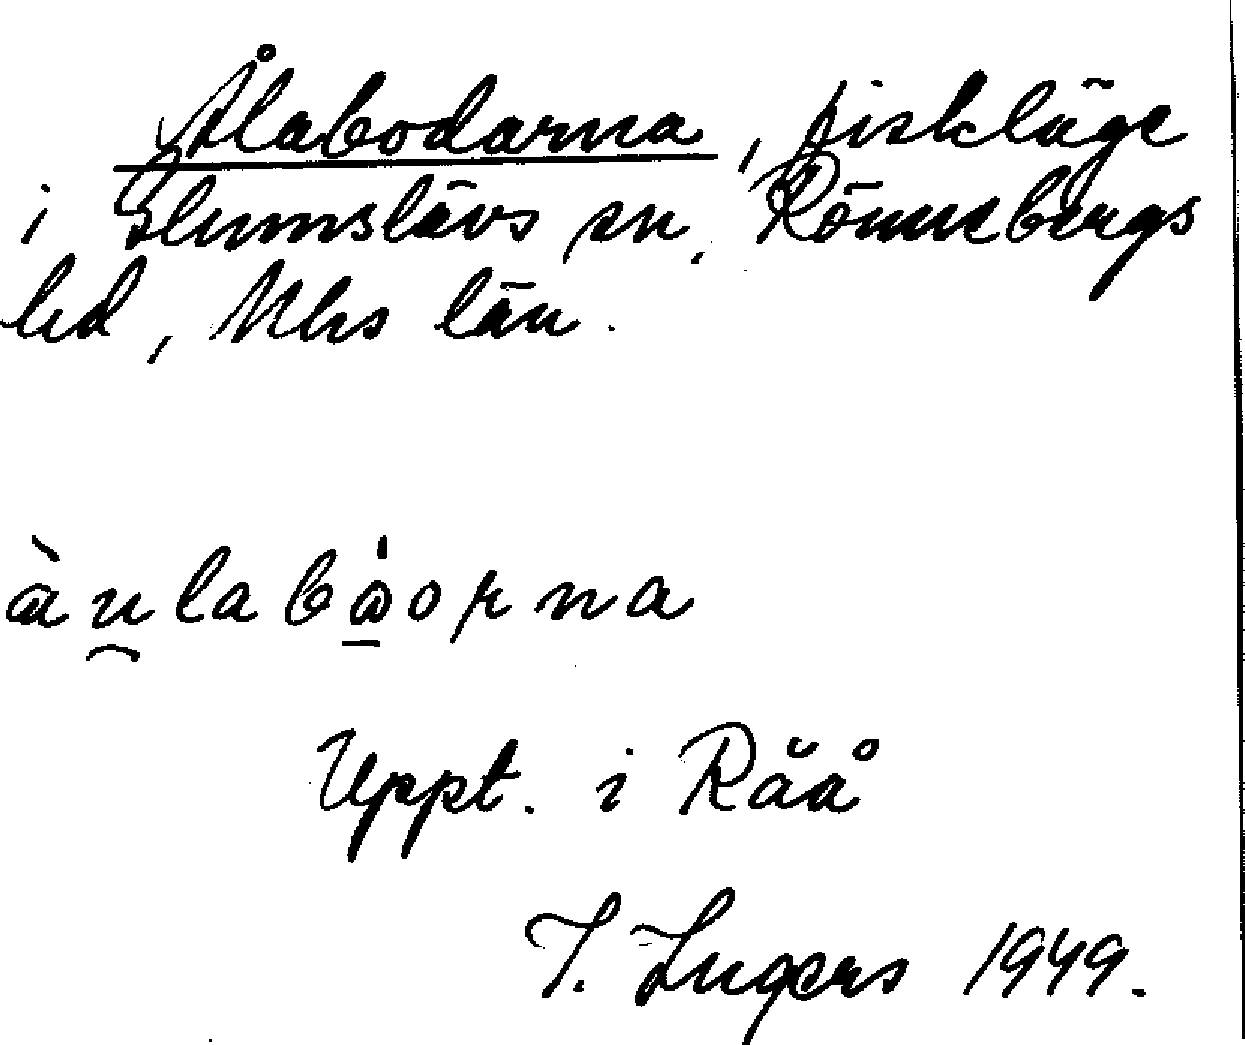 Ålabodarna, fiskläge
i Glumslövs sn, Rönnebergs
hd, Mhs län.
Uppt. i Råå
I. Ingers 1949.